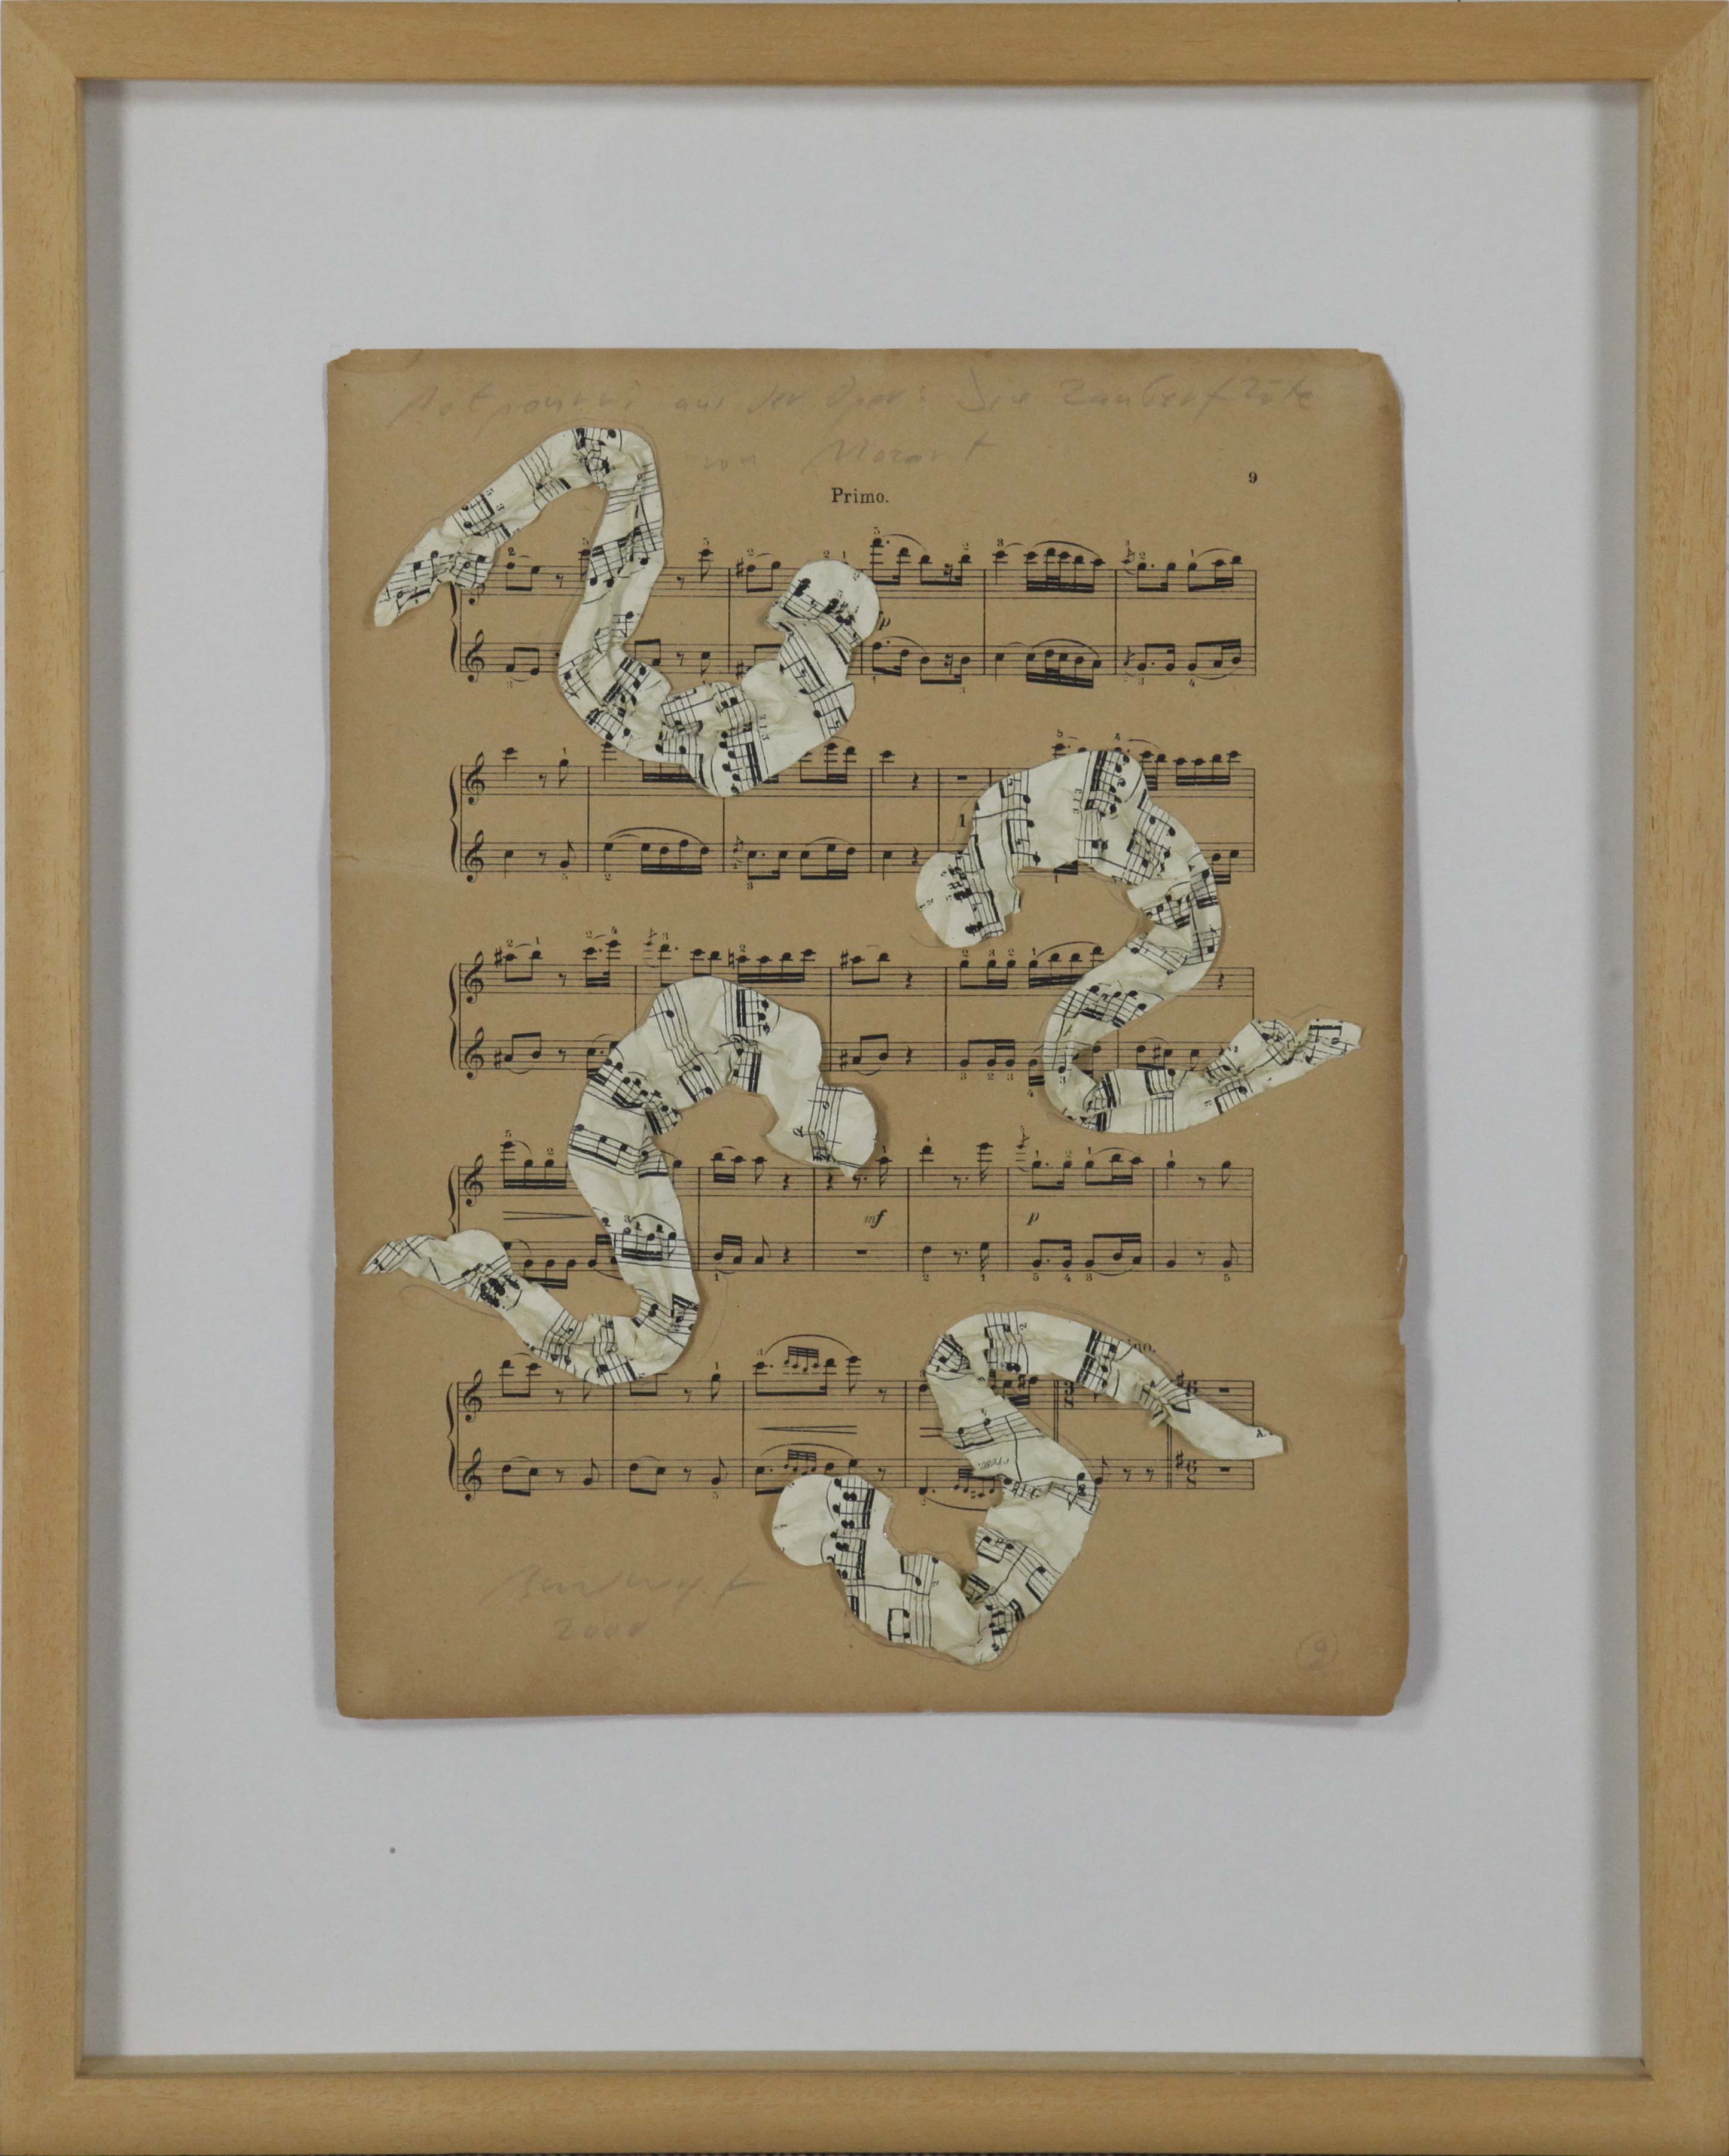 Potpourri aus der Oper: Die Zauberflöte
von Mozart
9
Primo.
p
1
mf
p
no.
2000
9